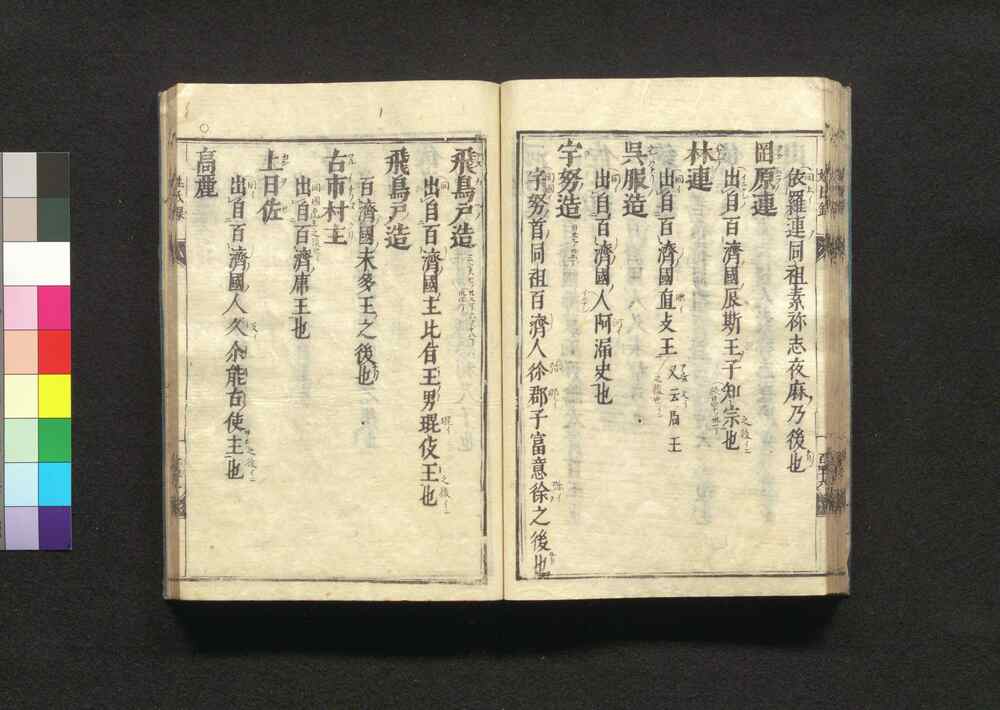 依羅連同祖素祢志夜麻乃後也
田原連
出自百濟國辰斯王子知宗也
林連
出自百濟國直支王 又云周王
呉服造
出自百濟國人阿漏史也
宇努造
宇努首同祖百濟人徐郡子富意徐之後也
飛鳥戸造
出自百濟國主比有王男琨伎王也
飛鳥戸造
百濟國末多王之後也
古市村主
出自百濟庸王也
上日佐
出自百濟國人久尒能古使主也
高麗